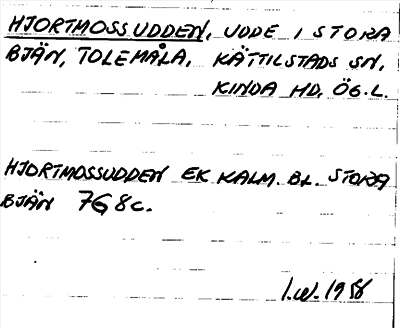 HJORTMOSSUDDEN, UDDE I STORA
BJÄN, TOLEMÅLA, KÄTTILSTADS SN,
KINDA HD, ÖG.L.
HJORTMOSSUDDEN EK KALM. BL. STORA
BJÄN 7G 8c.
I.W. 1958